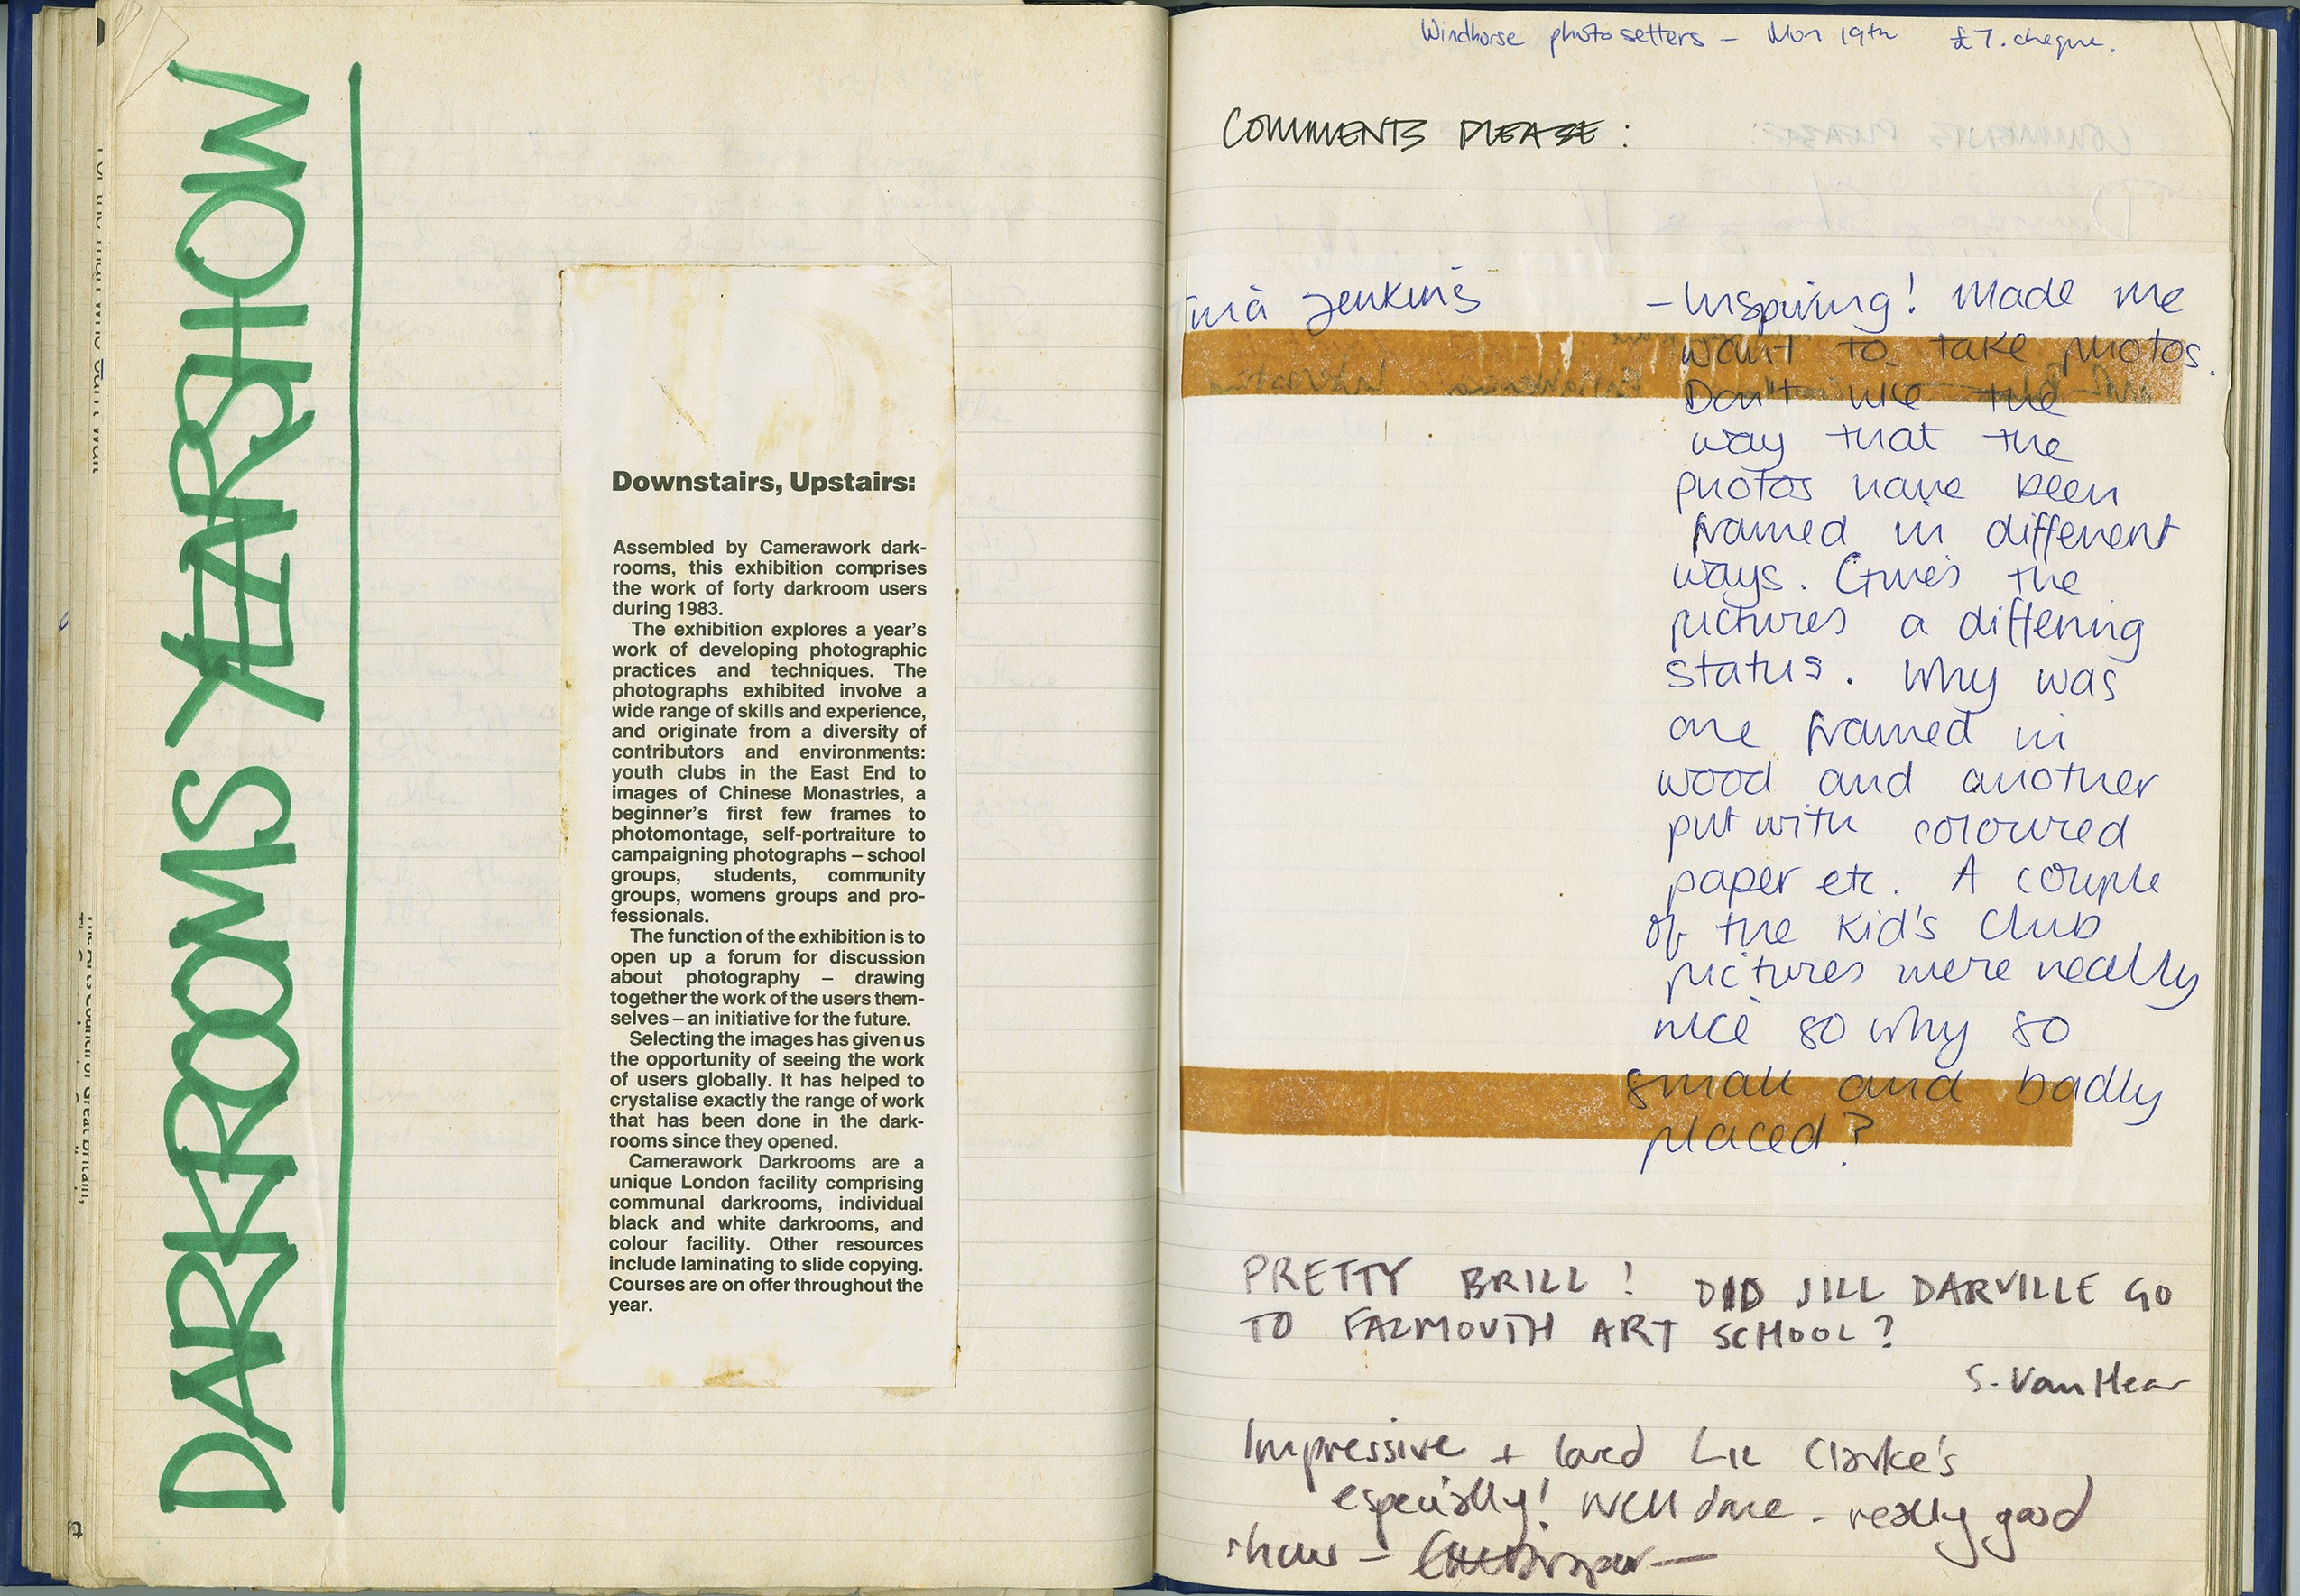 DARKROOMS YEARSHOW
Downstairs, Upstairs:
Assembled by Camerawork dark-
rooms, this exhibition comprises
the work of forty darkroom users
during 1983.
The exhibition explores a year's
work of developing photographic
practices and techniques. The
photographs exhibited involve a
wide range of skills and experience,
and originate from a diversity of
contributors and environments:
youth clubs in the East End to
images of Chinese Monastries, a
beginner's first few frames to
photomontage, self-portraiture to
campaigning photographs – school
groups, students, community
groups, womens groups and pro-
fessionals.
The function of the exhibition is to
open up a forum for discussion
about photography – drawing
together the work of the users them-
selves – an initiative for the future.
Selecting the images has given us
the opportunity of seeing the work
of users globally. It has helped to
crystalise exactly the range of work
that has been done in the dark-
rooms since they opened.
Camerawork Darkrooms are a
unique London facility comprising
communal darkrooms, individual
black and white darkrooms, and
colour facility. Other resources
include laminating to slide copying.
Courses are on offer throughout the
year.
Windhorse photosetters – Mon 19th £7. cheque.
COMMENTS PLEASE:
Tina Jenkins – Inspiring! Made me
want to take photos.
Don't like the
way that the
photos have been
framed in different
ways. Gives the
pictures a differing
status. Why was
one framed in
wood and another
put with coloured
paper etc. A couple
of the Kid's Club
pictures were really
nice so why so
small and badly
placed?
PRETTY BRILL! DID JILL DARVILLE GO
TO FALMOUTH ART SCHOOL?
S. Van Hear
Impressive + loved Liz Clarke's
especially! Well done - really good
show –